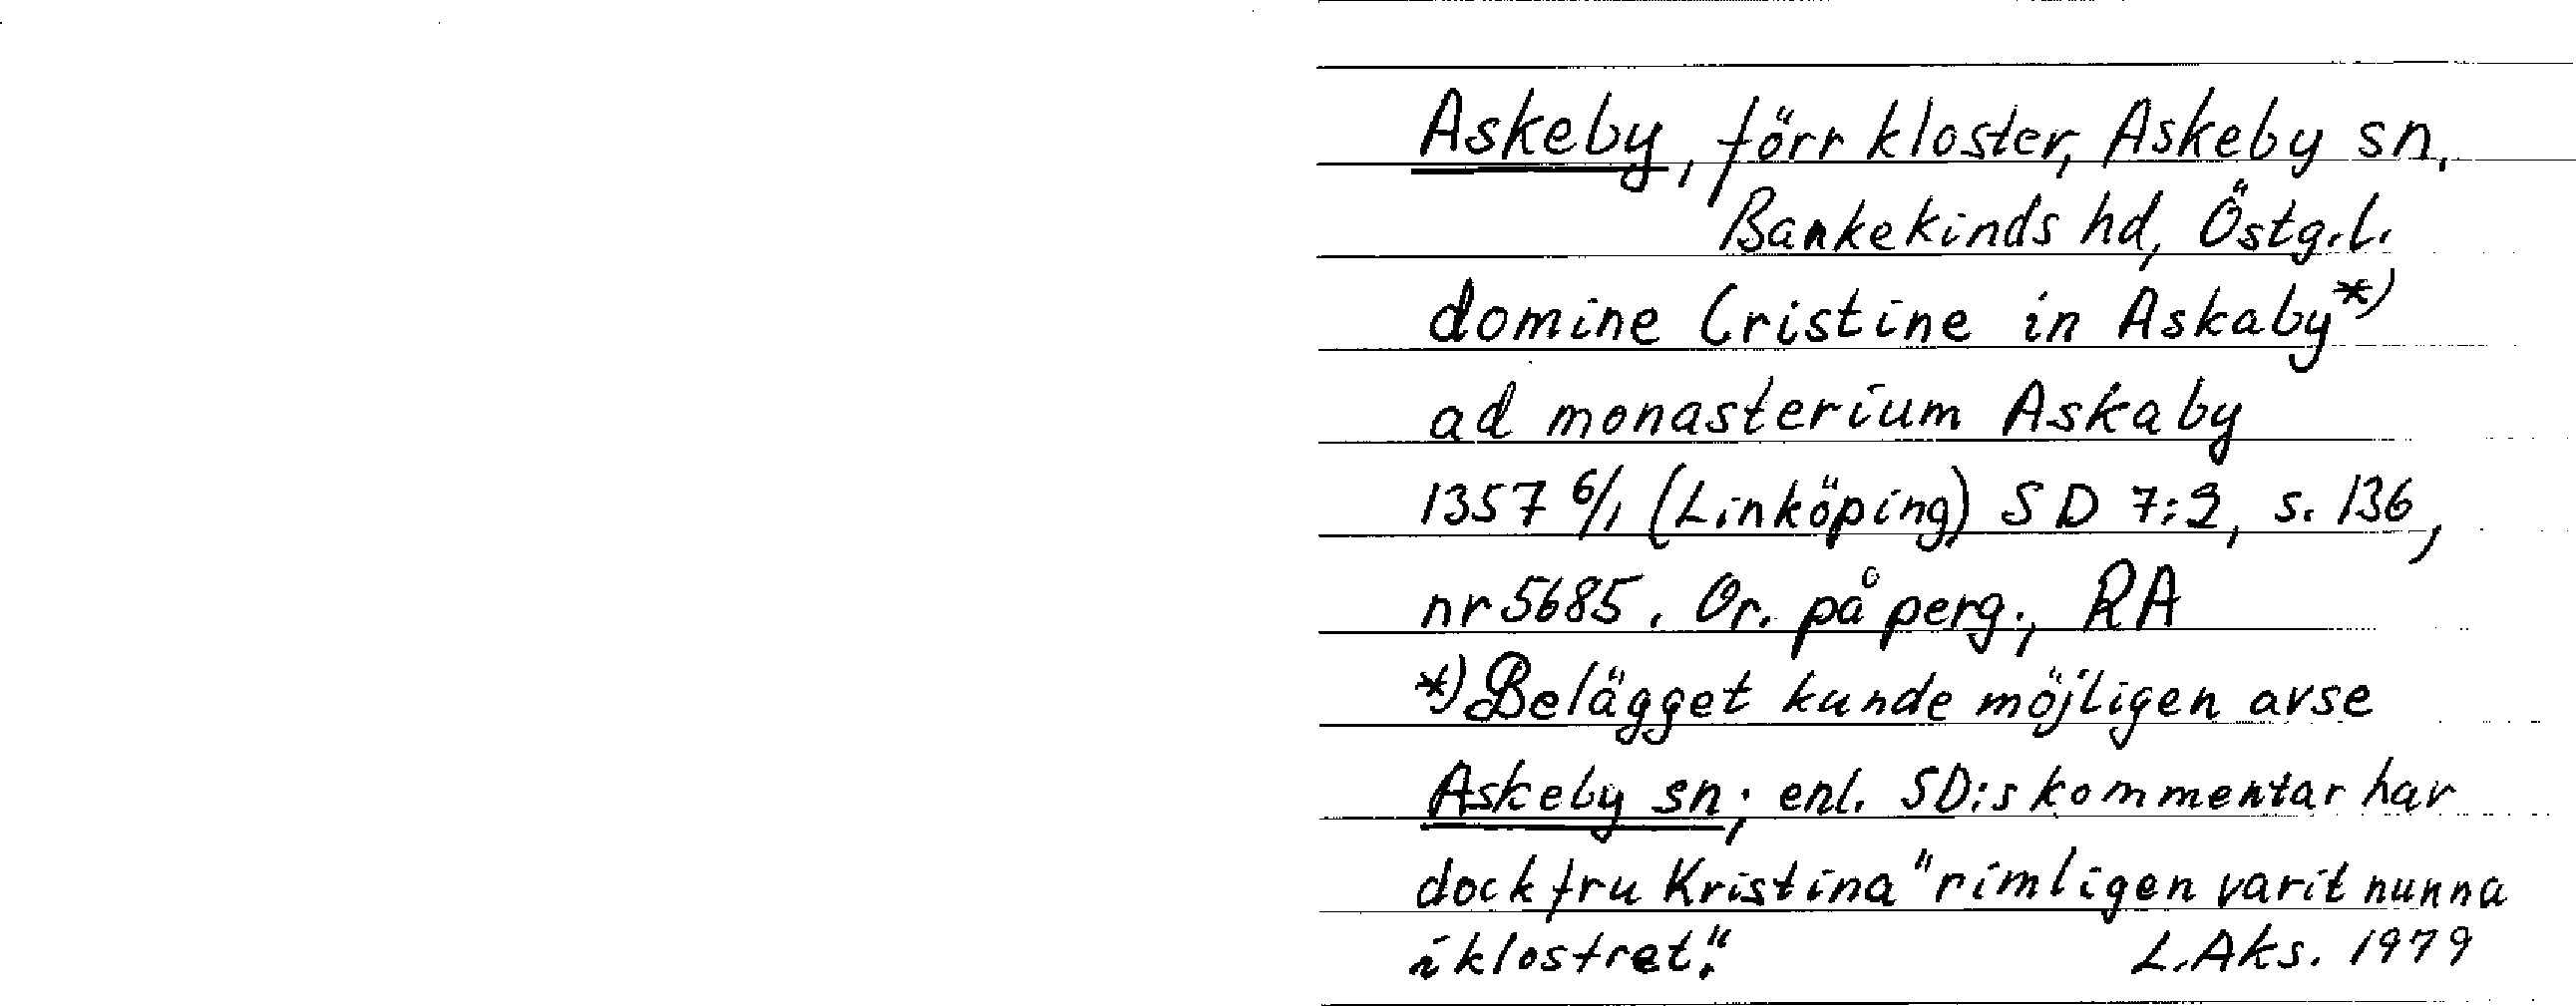 Askeby, förr kloster, Askeby sn.
Bankekinds hd, Östg.l.
domine Cristine in Askaby*)
ad monasterium Askaby
1357 6/1 (Linköping) SD 7:2, s. 136,
nr 5685. Or. på perg., RA
*) Belägget kunde möjligen avse
Askeby sn; enl. SD:s kommentar har
dock fru Kristina "rimligen varit nunna
i klostret".
L.Aks. 1979